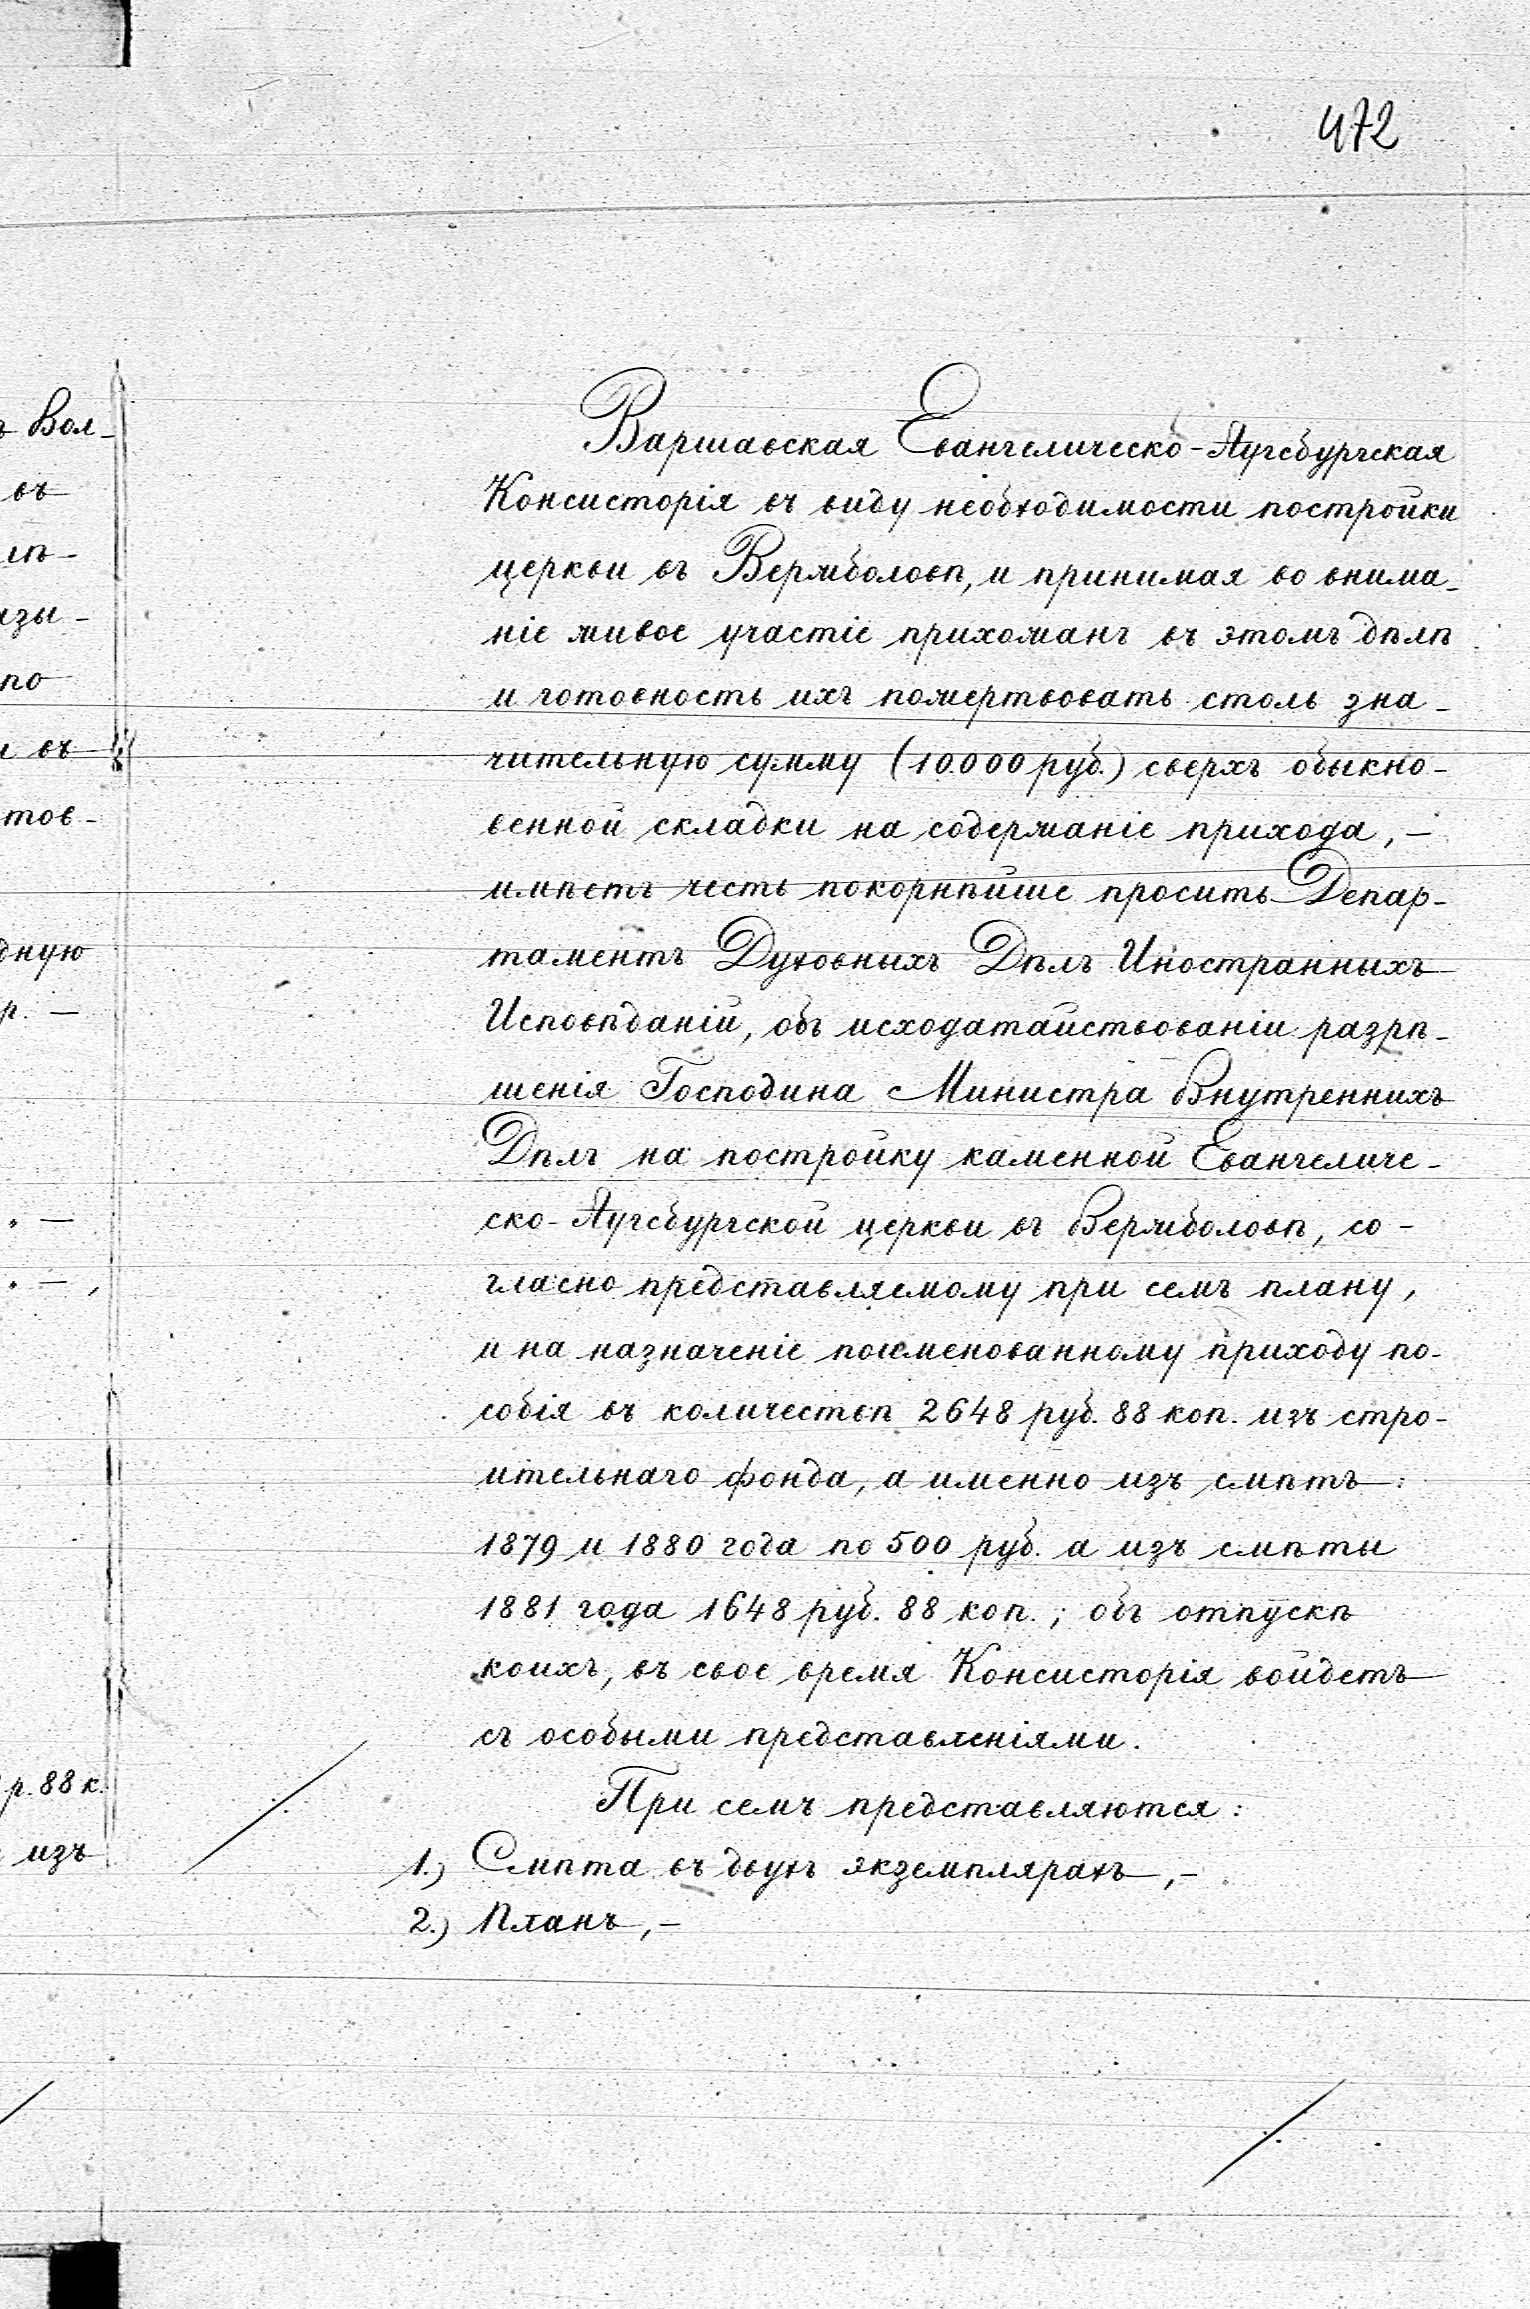 472
Варшавская Евангелическо-Аугсбургская
Консисторія въ виду необходимости постройки
церкви въ Вержболовѣ, и принимая во внима-
ніе живое участіе прихожанъ въ этомъ дѣлѣ
и готовность ихъ пожертвовать столь зна-
чительную сумму (10.000 руб.) сверхъ обыкно-
венной складки на содержаніе прихода, —
имѣетъ честь покорнѣйше просить Депар-
таментъ Духовныхъ Дѣлъ Иностранныхъ
Исповѣданій, объ исходатайствованіи разрѣ-
шенія Господина Министра Внутреннихъ
Дѣлъ на постройку каменной Евангеличе-
ско-Аугсбургской церкви въ Вержболовѣ, со-
гласно представляемому при семъ плану,
и на назначеніе поименованному приходу по-
собія въ количествѣ 2648 руб. 88 коп. изъ стро-
ительнаго фонда, а именно изъ смѣтъ:
1879 и 1880 года по 500 руб. а изъ смѣты
1881 года 1648 руб. 88 коп.; объ отпускѣ
коихъ, въ свое время Консисторія войдетъ
съ особыми представленіями.
При семъ представляются:
1.) Смѣта въ двухъ экземплярахъ, -
2.) Планъ, -
ъ Вол-
въ
азы-
по
и въ
тов-
дную
р. —
р. 88 к.
изъ